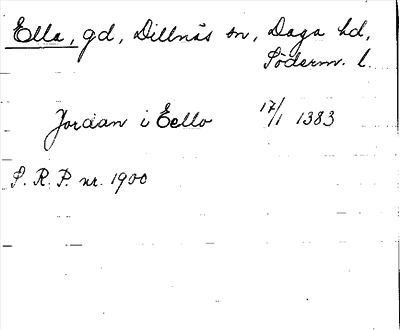 Ella, gd, Dillnäs sn, Daga hd,
Söderm. l.
Jordan i Eello 17/1 1383
S. R. P. nr. 1900